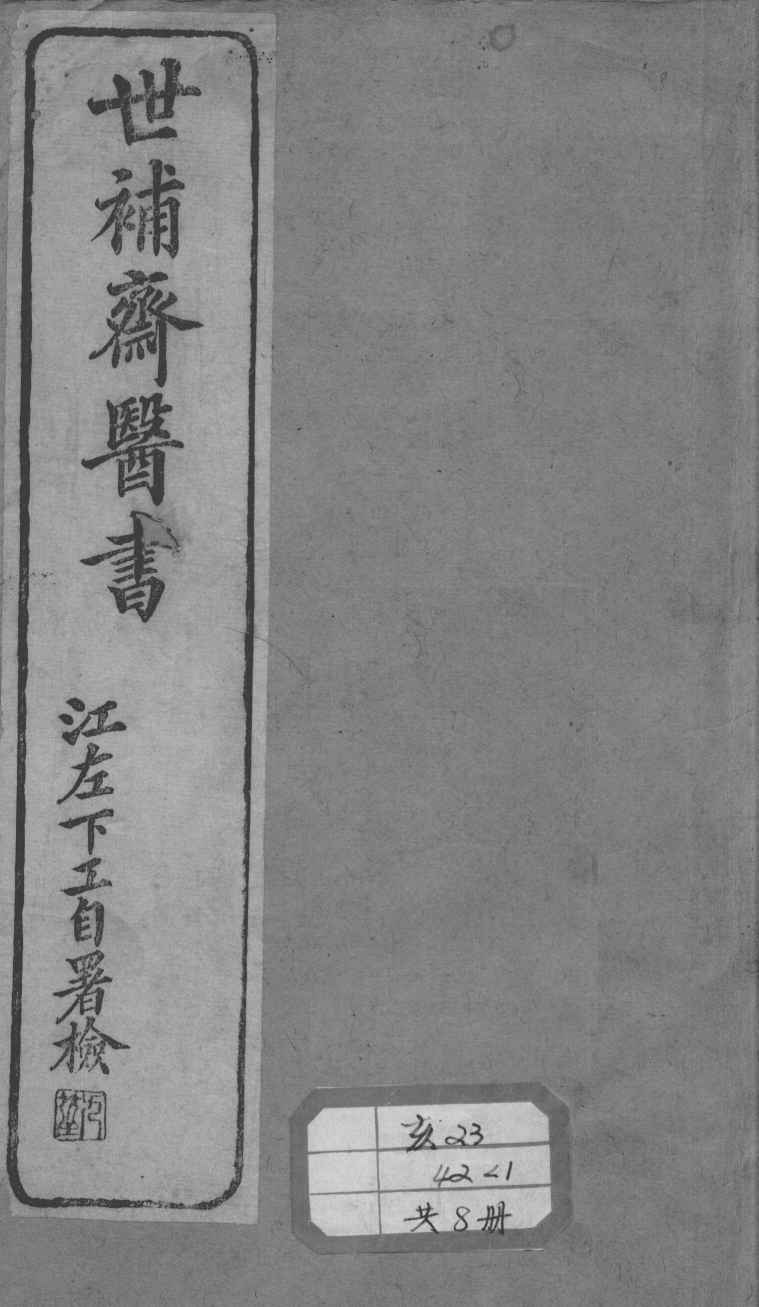 世補齋醫書
江左下工自署檢
亥23
42<1
共8册